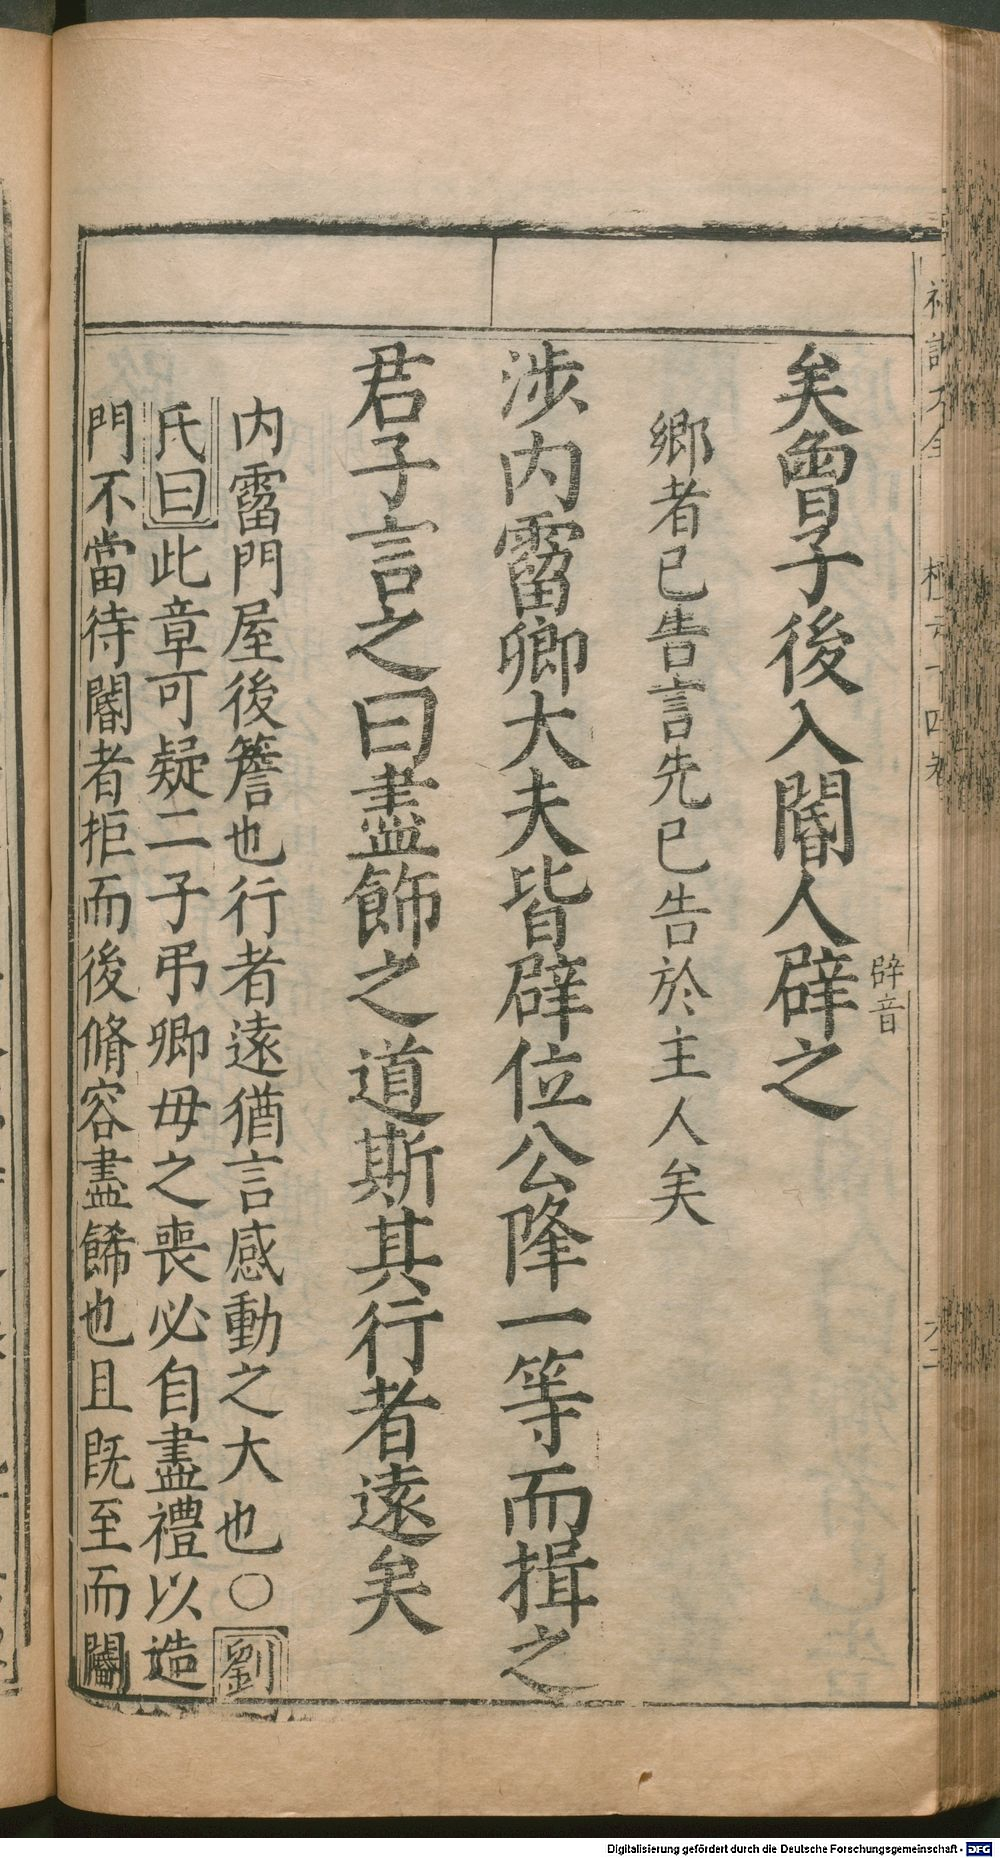 矣曾子後入閽人辟之
辟音
鄉者已告言先已告於主人矣
涉内霤卿大夫皆辟位公降一等而揖之
君子言之曰盡飾之道斯其行者遠矣
内霤門屋後簷也行者遠猶言感動之大也○劉
氏曰此章可疑二子弔卿母之喪必自盡禮以造
門不當待閽者拒而後脩容盡餙也且既至而閽
Digitalisierung gefördert durch die Deutsche Forschungsgemeinschaft - DFG